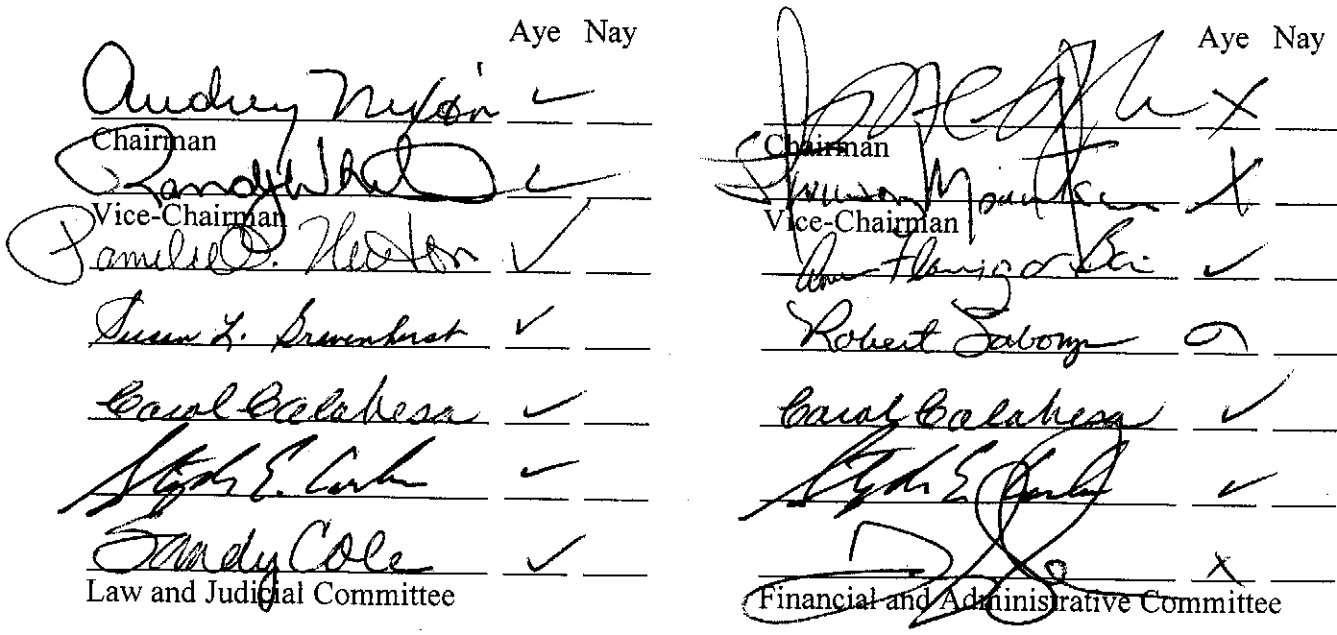 Aye Nay
Audrey Nixon ✓
Chairman
Randy Whit ✓
Vice-Chairman
Pamela O. Newton ✓
Susan L. Gravenhorst ✓
Carol Calabresa ✓
Stephen E. Carlson ✓
Sandy Cole ✓
Law and Judicial Committee
Aye Nay
X
Chairman
X
Vice-Chairman
Ann Flanigan Bassi ✓
Robert Sabonjian
Carol Calabresa ✓
Stephen E. Carlson ✓
X
Financial and Administrative Committee